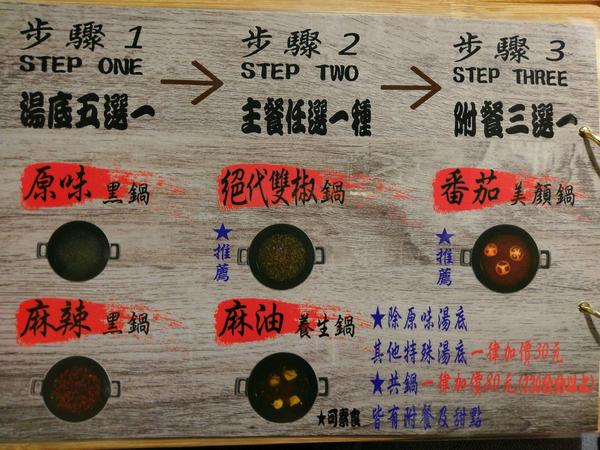 步驟 1
STEP ONE
湯底五選一
步驟 2
STEP TWO
主餐任選一種
步驟 3
STEP THREE
附餐三選一
原味 黑鍋
絕代雙椒鍋
★推薦
番茄 美顏鍋
★推薦
麻辣 黑鍋
麻油 養生鍋
★可素食
★除原味湯底
其他特殊湯底一律加價30元
★共鍋一律加價80元(130公分以上)
皆有附餐及甜點